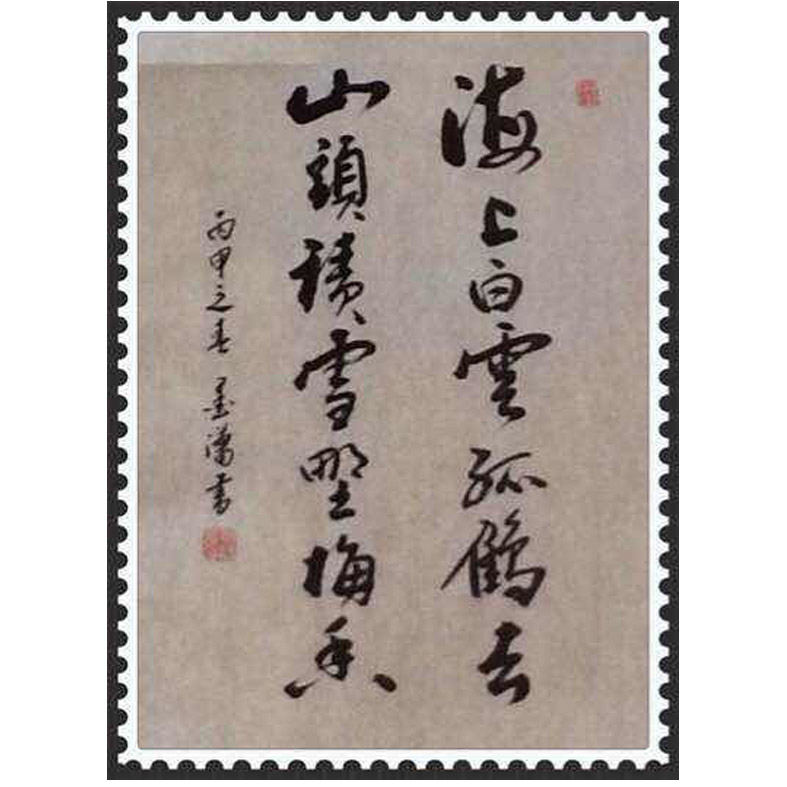 海上白雲孤鶴去
山頭積雪野梅香
丙申之春 墨潘書